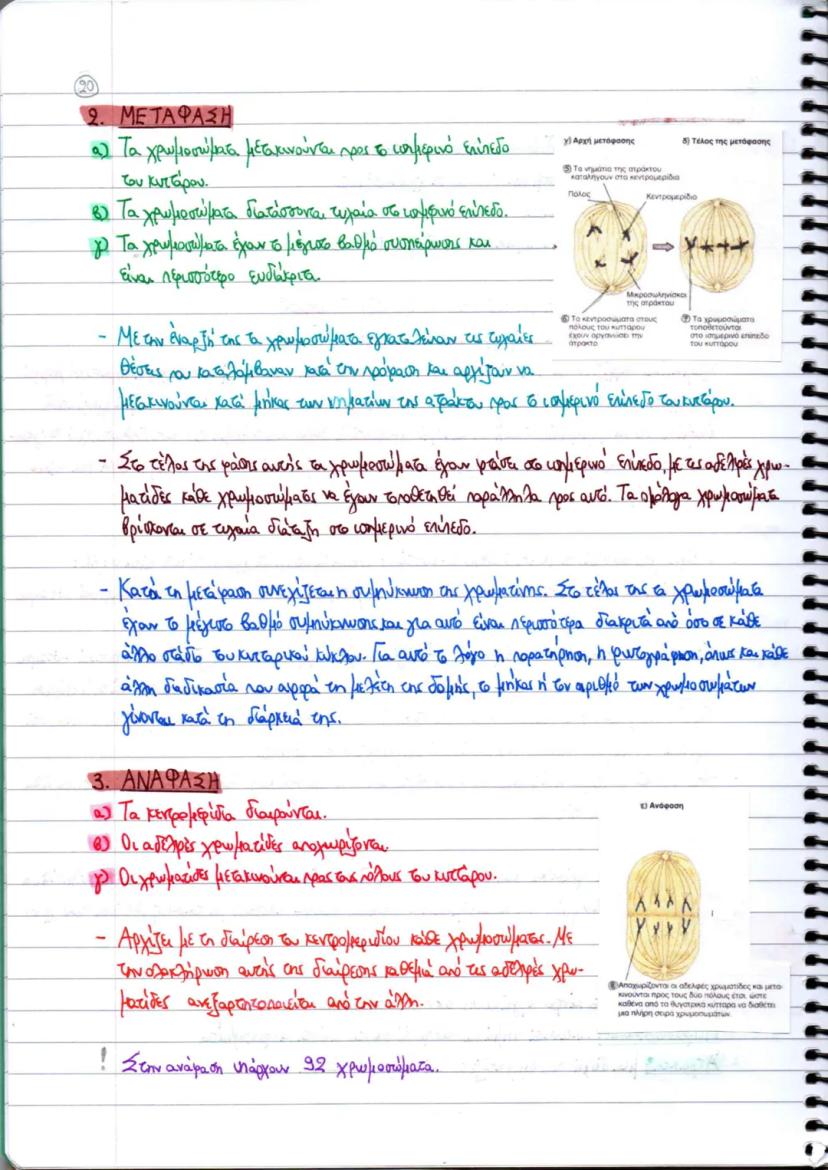 20
2. ΜΕΤΑΦΑΣΗ
α) Τα χρωμοσώματα μετακινούνται προς το ισημερινό επίπεδο
του κυττάρου.
β) Τα χρωμοσώματα διατάσσονται τυχαία στο ισημερινό επίπεδο.
γ) Τα χρωμοσώματα έχουν το μέγιστο βαθμό συσπείρωσης και
είναι περισσότερο ευδιάκριτα.
γ) Αρχή μετάφασης
δ) Τέλος της μετάφασης
⑤ Τα νημάτια της ατράκτου
καταλήγουν στα κεντρομερίδια
Πόλος
Κεντρομερίδιο
Μικροσωληνίσκοι
της ατράκτου
⑥ Τα κεντροσώματα στους
πόλους του κυττάρου
έχουν οργανώσει την
άτρακτο
⑦ Τα χρωμοσώματα
τοποθετούνται
στο ισημερινό επίπεδο
του κυττάρου
- Με την έναρξή της τα χρωμοσώματα εγκαταλείπουν τις τυχαίες
θέσεις που καταλάμβαναν κατά την πρόφαση και αρχίζουν να
μετακινούνται κατά μήκος των νηματίων της ατράκτου προς το ισημερινό επίπεδο του κυττάρου.
- Στο τέλος της φάσης αυτής τα χρωμοσώματα έχουν φτάσει στο ισημερινό επίπεδο, με τις αδελφές χρω-
ματίδες κάθε χρωμοσώματος να έχουν τοποθετηθεί παράλληλα προς αυτό. Τα ομόλογα χρωμοσώματα
βρίσκονται σε τυχαία διάταξη στο ισημερινό επίπεδο.
- Κατά τη μετάφαση συνεχίζεται η συμπύκνωση της χρωματίνης. Στο τέλος της τα χρωμοσώματα
έχουν το μέγιστο βαθμό συμπύκνωσης και για αυτό είναι περισσότερα διακριτά από όσο σε κάθε
άλλο στάδιο του κυτταρικού κύκλου. Για αυτό το λόγο η παρατήρηση, η φωτογράφηση, όπως και κάθε
άλλη διαδικασία που αφορά τη μελέτη της δομής, το μήκος ή τον αριθμό των χρωμοσωμάτων
γίνονται κατά τη διάρκειά της.
3. ΑΝΑΦΑΣΗ
α) Τα κεντρομερίδια διαιρούνται.
β) Οι αδελφές χρωματίδες αποχωρίζονται.
γ) Οι χρωματίδες μετακινούνται προς τους πόλους του κυττάρου.
ε) Ανάφαση
⑧ Αποχωρίζονται οι αδελφές χρωματίδες και μετα-
κινούνται προς τους δύο πόλους έτσι, ώστε
καθένα από τα θυγατρικά κύτταρα να διαθέτει
μια πλήρη σειρά χρωμοσωμάτων.
- Αρχίζει με τη διαίρεση του κεντρομεριδίου κάθε χρωμοσώματος. Με
την ολοκλήρωση αυτής της διαίρεσης καθεμιά από τις αδελφές χρω-
ματίδες ανεξαρτητοποιείται από την άλλη.
! Στην ανάφαση υπάρχουν 92 χρωμοσώματα.